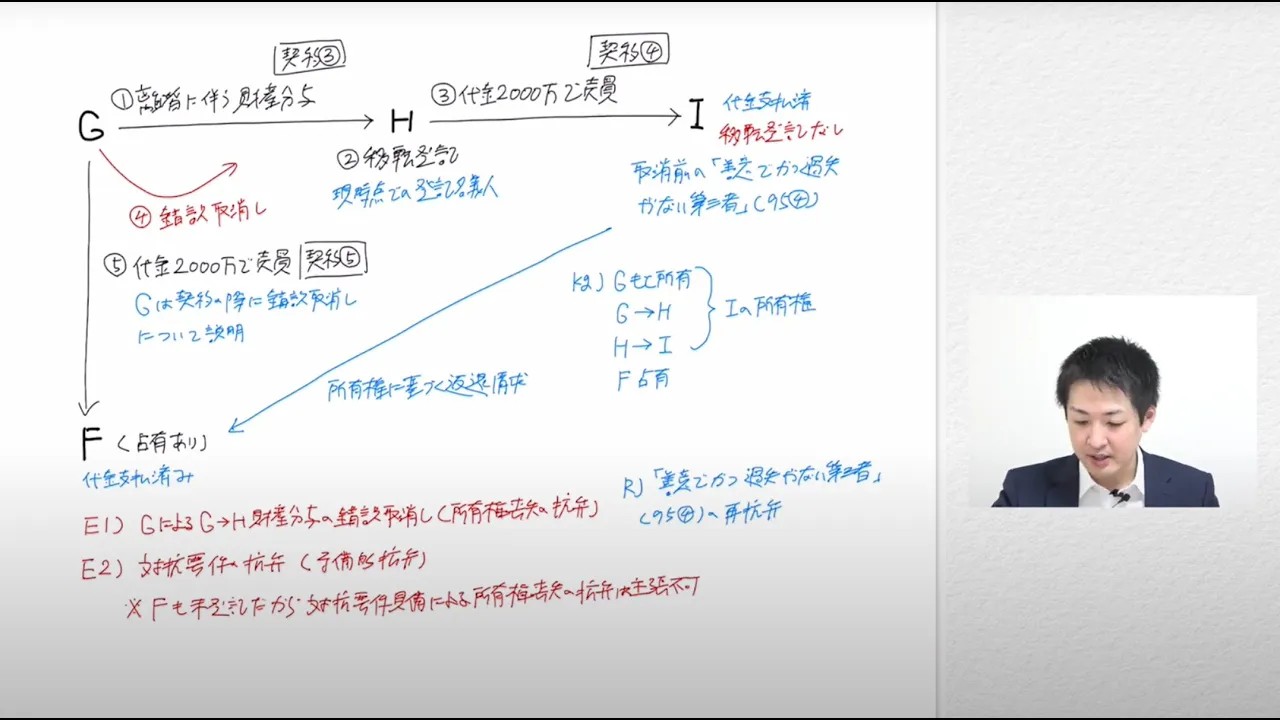 契約③
契約④
①離婚に伴う財産分与
③代金2000万で売買
代金支払済
G
H
I
移転登記なし
②移転登記
現時点での登記名義人
取消前の「善意でかつ過失
がない第三者」(95④)
④錯誤取消し
⑤代金2000万で売買
契約⑤
Gは契約の際に錯誤取消し
について説明
Kg) Gもと所有
G→H
H→I
F占有
Iの所有権
所有権に基づく返還請求
F(占有あり)
代金支払済み
E1) GによるG→H財産分与の錯誤取消し(所有権喪失の抗弁)
E2) 対抗要件の抗弁(予備的抗弁)
※Fも未登記だから対抗要件具備による所有権喪失の抗弁は主張不可
R)「善意でかつ過失がない第三者」
(95④)の再抗弁